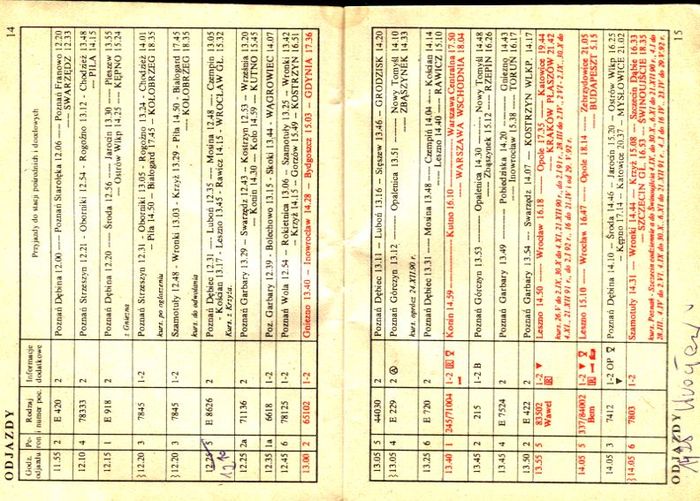 14
ODJAZDY
Godz. odjazdu
Pe- ron
Rodzaj i numer poc.
Informacje dodatkowe
Przyjazdy do stacji pośrednich i docelowych
11.55 2 E 420 2 Poznań Dębina 12.00 — Poznań Starołęka 12.06 — Poznań Franowo 12.20
— SWARZĘDZ 12.33
12.10 4 78333 2 Poznań Strzeszyn 12.21 - Oborniki 12.54 - Rogoźno 13.12 - Chodzież 13.48
— PIŁA 14.15
12.15 1 E 918 2 Poznań Dębina 12.20 — Środa 12.56 — Jarocin 13.30 — Pleszew 13.55
z Gniezna — Ostrów Wlkp 14.25 — KĘPNO 15.24
12.20 3 7845 1-2 Poznań Strzeszyn 12.31 - Oborniki 13.05 - Rogoźno 13.24 - Chodzież 14.01
kurs. po ogłoszeniu Piła 14.50 - Białogard 17.45 - KOŁOBRZEG 18.35
12.20 3 7845 1-2 Szamotuły 12.48 - Wronki 13.03 - Krzyż 13.29 - Piła 14.50 - Białogard 17.45
kurs. do odwołania — KOŁOBRZEG 18.35
12.25 5 E 8626 2 Poznań Dębiec 12.31 — Luboń 12.35 — Mosina 12.48 — Czempiń 13.05
- Kościan 13.17 - Leszno 13.45 - Rawicz 14.15 - WROCŁAW GŁ. 15.32
Kurs. z Krzyża.
12.10
12.25 2a 71136 2 Poznań Garbary 13.29 — Swarzędz 12.43 — Kostrzyn 12.53 — Września 13.20
— Konin 14.30 — Koło 14.59 — KUTNO 15.45
12.35 1a 6618 1-2 Poz. Garbary 12.39 - Bolechowo 13.15 - Skoki 13.44 - WĄGROWIEC 14.07
12.45 6 78125 1-2 Poznań Wola 12.54 - Rokietnica 13.06 - Szamotuły 13.25 - Wronki 13.42
- Krzyż 14.15 - Gorzów 15.49 - KOSTRZYN 16.51
13.00 2 65102 1-2 Gniezno 13.40 — Inowrocław 14.28 — Bydgoszcz 15.03 — GDYNIA 17.36
15
ODJAZDY
13.05 5 44030 2 Poznań Dębiec 13.11 — Luboń 13.16 — Stęszew 13.46 — GRODZISK 14.20
13.05 4 E 229 2 Poznań Górczyn 13.12 — Opalenica 13.51 — Nowy Tomyśl 14.10
kurs. oprócz 24.XII.90 r. — ZBĄSZYNEK 14.33
13.25 6 E 720 2 Poznań Dębiec 13.31 — Mosina 13.48 — Czempiń 14.04 — Kościan 14.14
— Leszno 14.40 — RAWICZ 15.10
13.40 1 245/71004 1-2 Konin 14.59 — Kutno 16.10 — Warszawa Centralna 17.50
— WARSZAWA WSCHODNIA 18.04
13.45 2 215 1-2 B Poznań Górczyn 13.53 — Opalenica 14.30 — Nowy Tomyśl 14.48
— Zbąszynek 15.12 — RZEPIN 16.26
13.45 4 E 7524 2 Poznań Garbary 13.49 — Pobiedziska 14.20 — Gniezno 14.43
— Inowrocław 15.38 — TORUŃ 16.17
13.50 2 E 422 2 Poznań Garbary 13.54 — Swarzędz 14.07 — KOSTRZYN WLKP. 14.17
13.55 5 83502 Wawel 1-2 Leszno 14.50 — Wrocław 16.18 — Opole 17.35 — Katowice 19.44
— KRAKÓW PŁASZÓW 21.42
14.05 5 337/84002 Bem 1-2 Leszno 15.10 — Wrocław 16.47 — Opole 18.14 — Zebrzydowice 21.05
— BUDAPESZT 5.15
14.05 3 7412 1-2 OP Poznań Dębina 14.10 — Środa 14.46 — Jarocin 15.20 — Ostrów Wlkp 16.25
— Kępno 17.14 — Katowice 20.37 — MYSŁOWICE 21.02
14.05 6 7803 1-2 Szamotuły 14.31 — Wronki 14.44 — Krzyż 15.08 — Szczecin Dąbie 16.33
— SZCZECIN GŁ. 16.53 — ŚWINOUJŚCIE 18.35